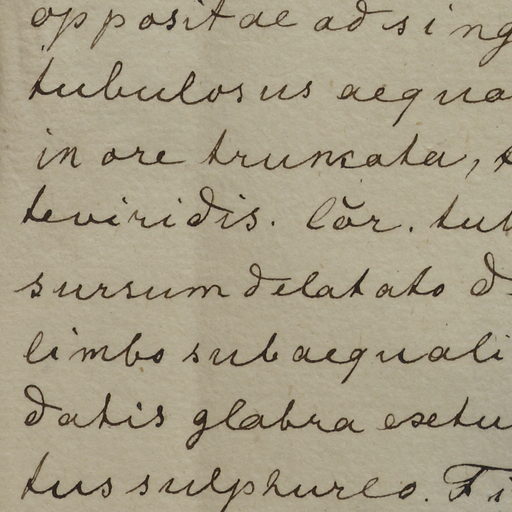 oppositae ad sing
tubulosus aequa
in ore truncata, t
teviridis. Cŏr. tub
sursum delatato d
limbo subaequali
datis glabra exetu
tus sulphureo. Fi